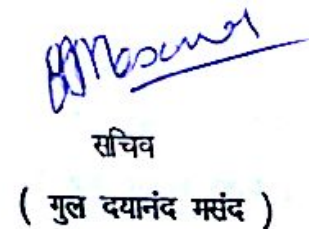 सचिव
( गुल दयानंद मसंद )